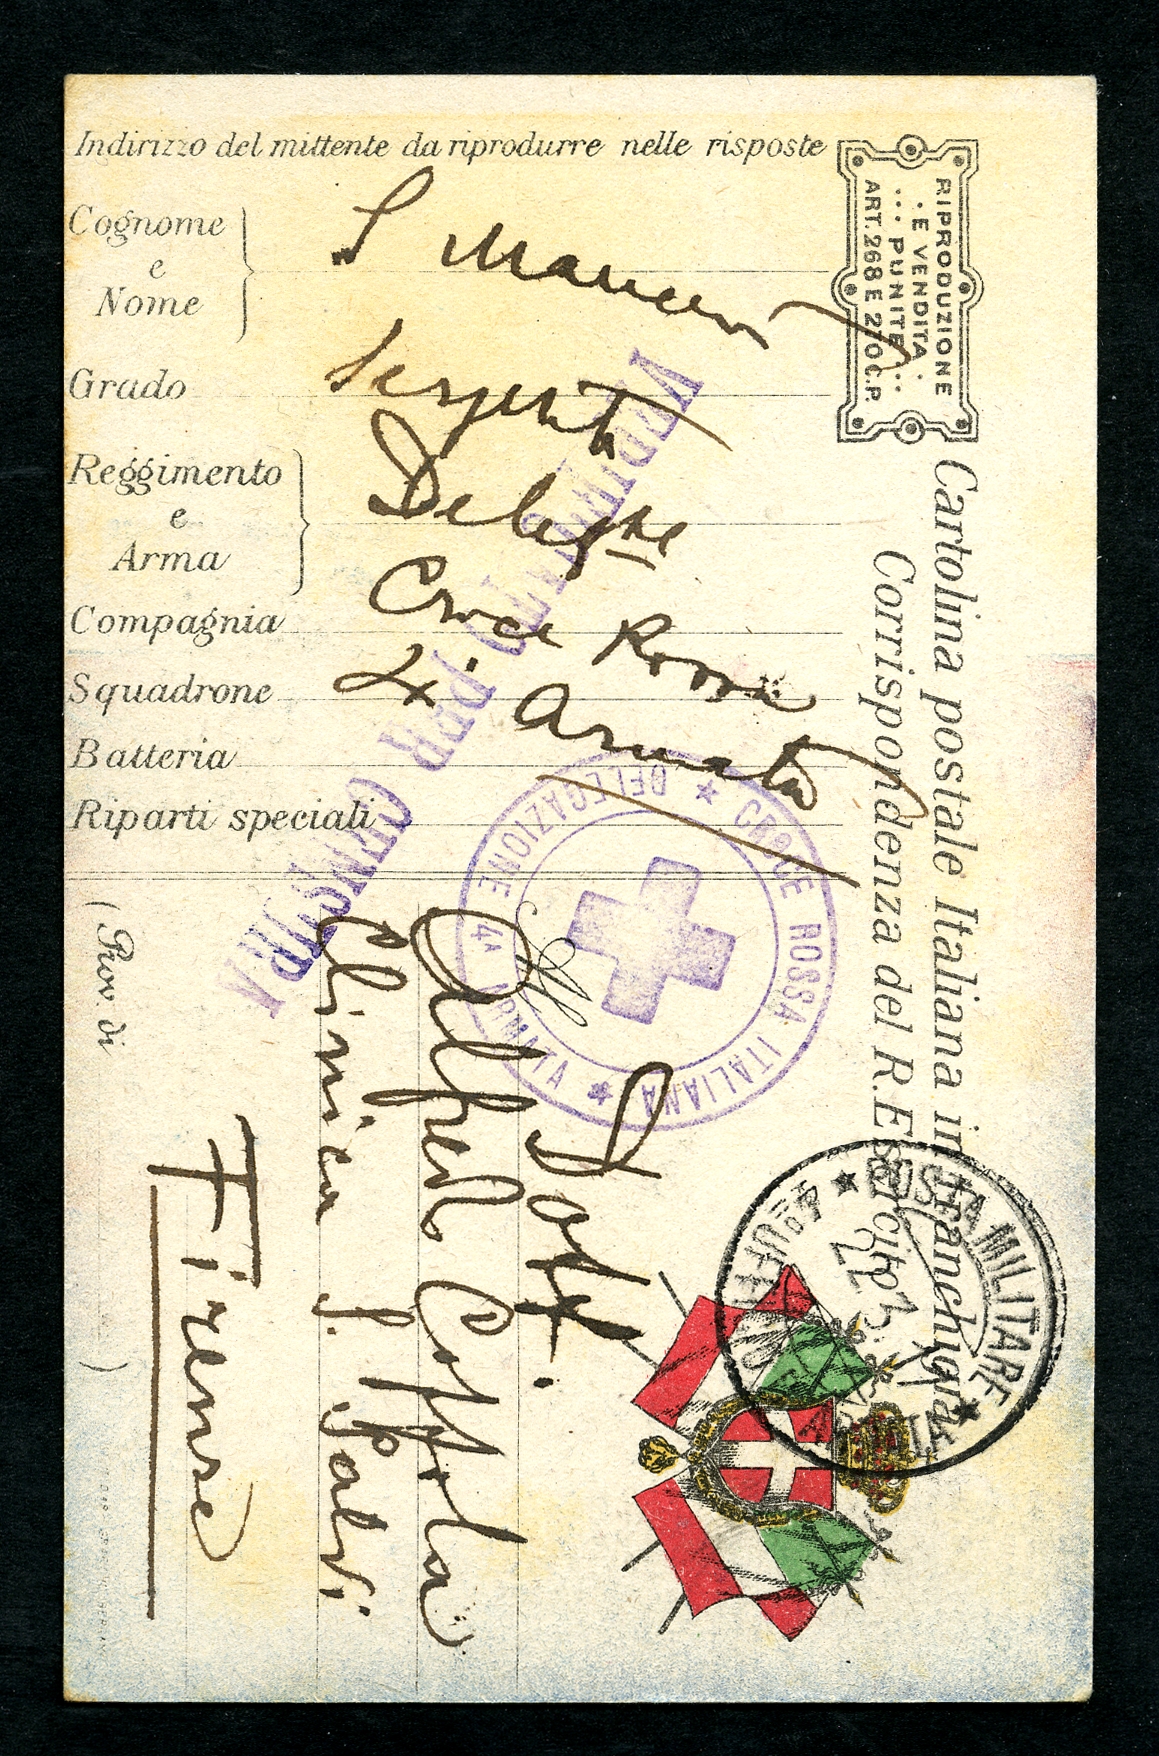 Indirizzo del mittente da riprodurre nelle risposte
Cognome
e
Nome
Grado
Reggimento
e
Arma
Compagnia
Squadrone
Batteria
Riparti speciali
Croce Rossa
4ª Armata
RIPRODUZIONE
· E VENDITA ·
··· PUNITE ···
ART. 268 E 270 C.P.
Cartolina postale Italiana in franchigia
Corrispondenza del R. Esercito
VERIFICATO PER CENSURA
★ CROCE ROSSA ITALIANA ★
DELEGAZIONE 4ª ARMATA
★ POSTA MILITARE ★
22 3
Al Dott.
Alfredo Coppola
Clinica S. Salvi
Firenze
(Prov di )